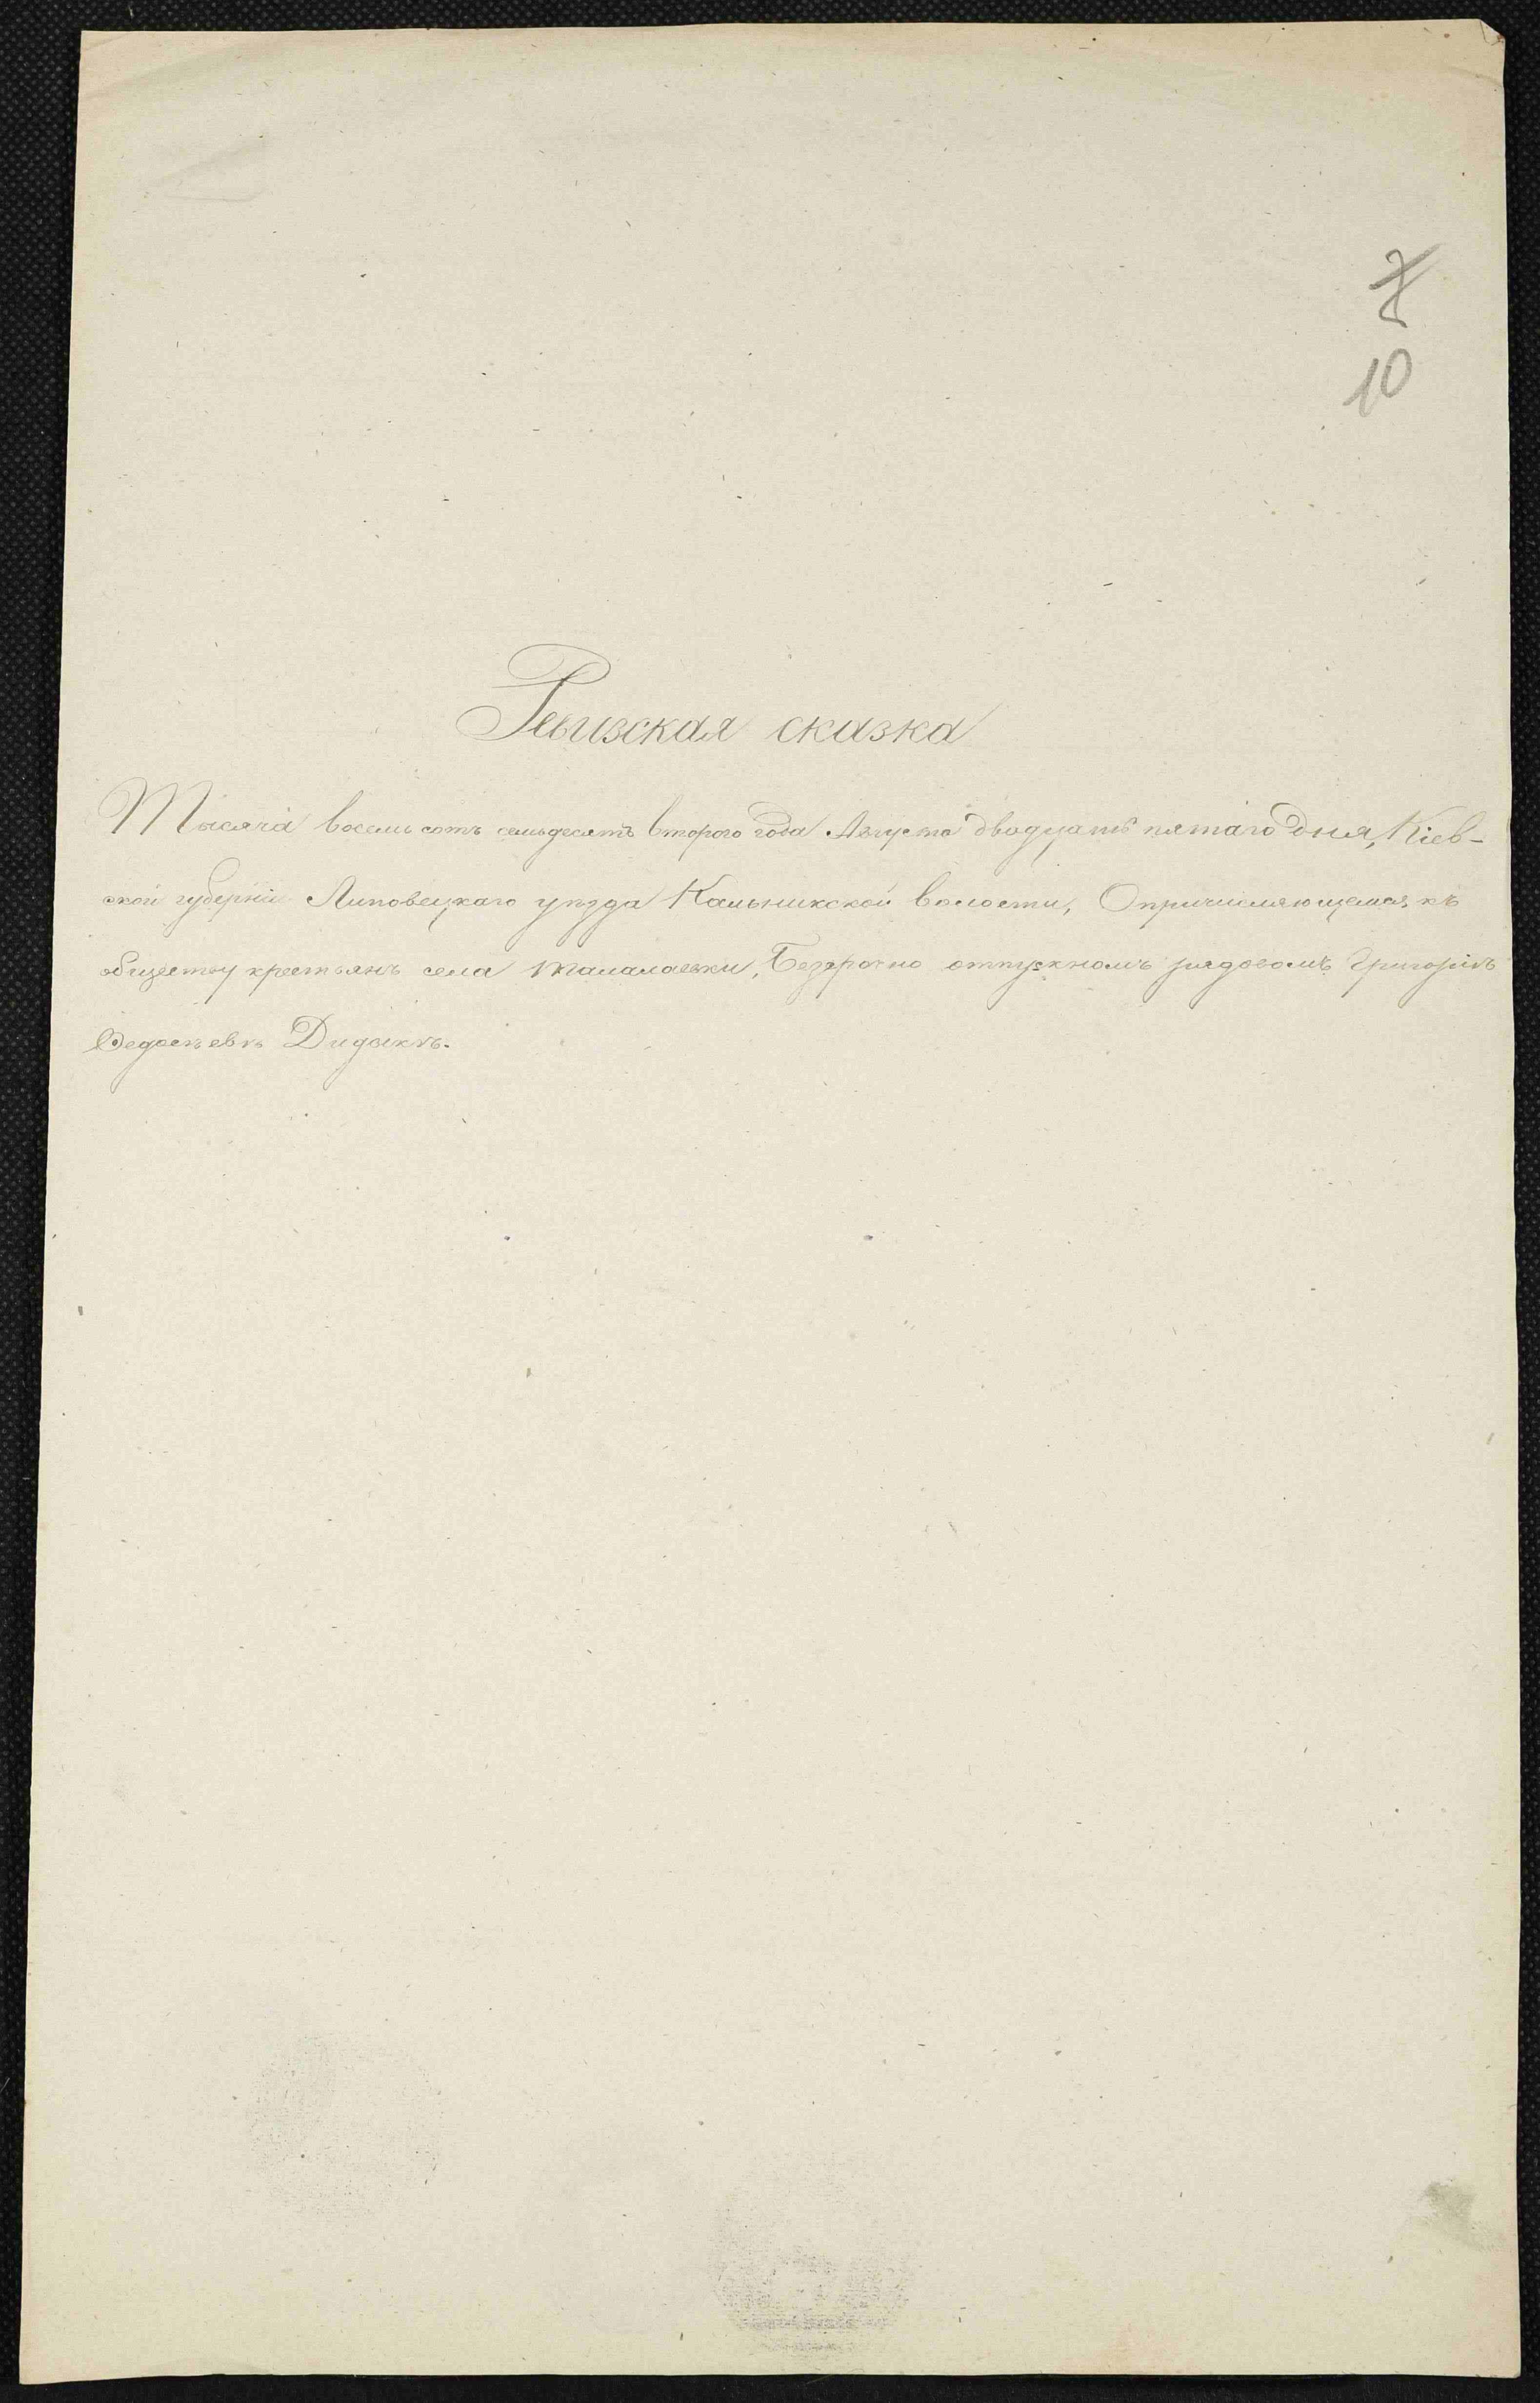 7
10
Ревизская сказка
Тысяча восемь сотъ семьдесятъ втораго года Августа двадцать пятаго дня, Кіев-
ской губерніи Липовецкаго уѣзда Кальникской волости, О причисляющемся къ
обществу крестьянъ села Талалаевки, Безсрочно отпускномъ рядовомъ Григоріѣ
Ѳедосѣевѣ Дидыкѣ.